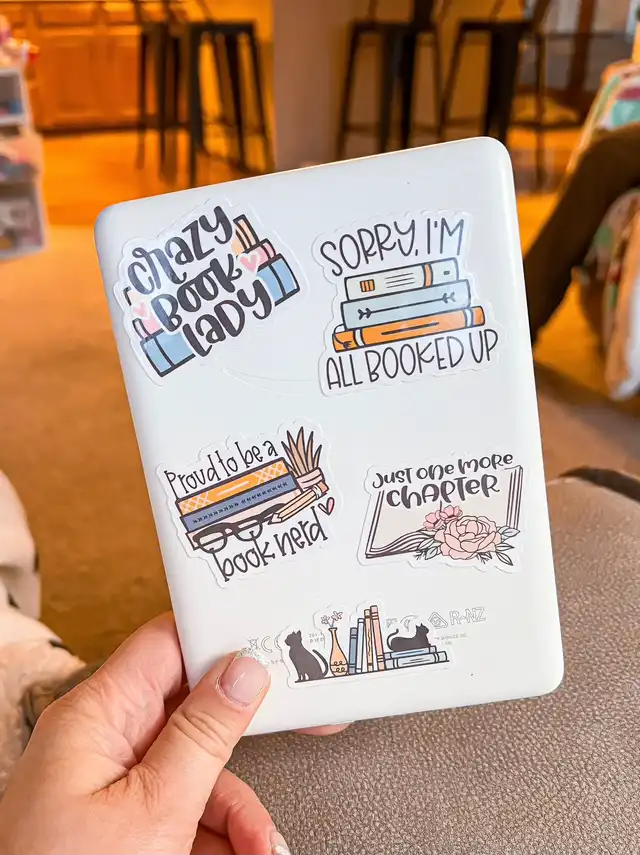 crazy
BOOK
lady
SORRY, I'M
ALL BOOKED UP
Proud to be a
book nerd
Just one more
chapter
R-NZ